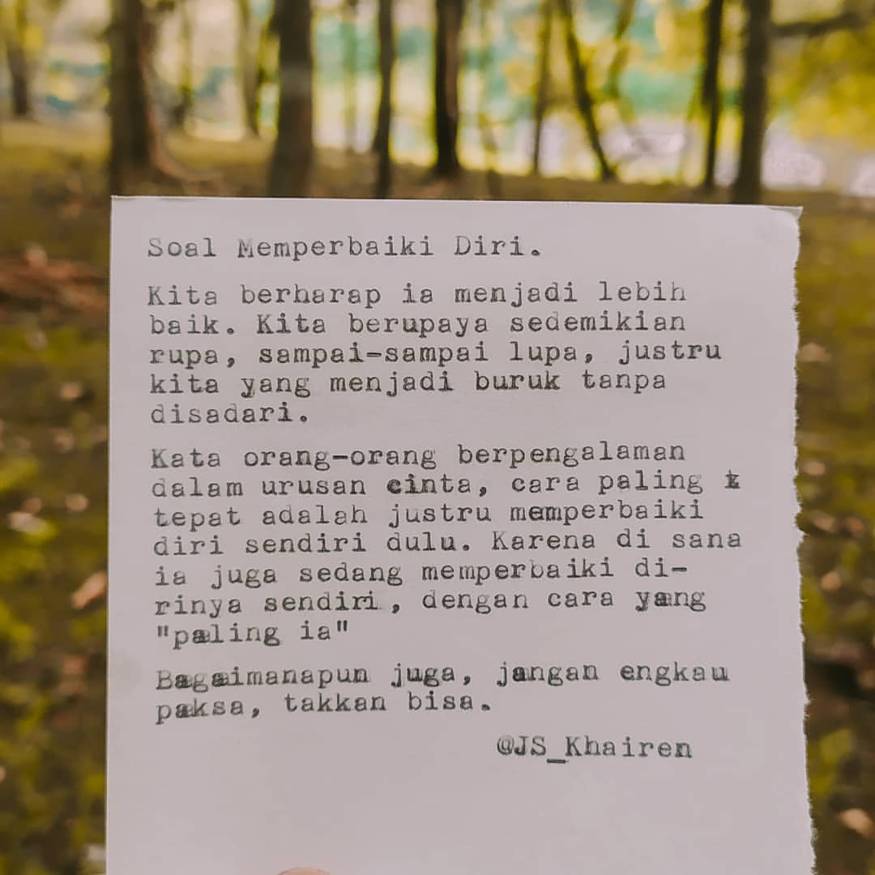 Soal Memperbaiki Diri.
Kita berharap ia menjadi lebih
baik. Kita berupaya sedemikian
rupa, sampai-sampai lupa, justru
kita yang menjadi buruk tanpa
disadari.
Kata orang-orang berpengalaman
dalam urusan cinta, cara paling
tepat adalah justru memperbaiki
diri sendiri dulu. Karena di sana
ia juga sedang memperbaiki di-
rinya sendiri, dengan cara yang
"paling ia"
Bagaimanapun juga, jangan engkau
paksa, takkan bisa.
@JS_Khairen